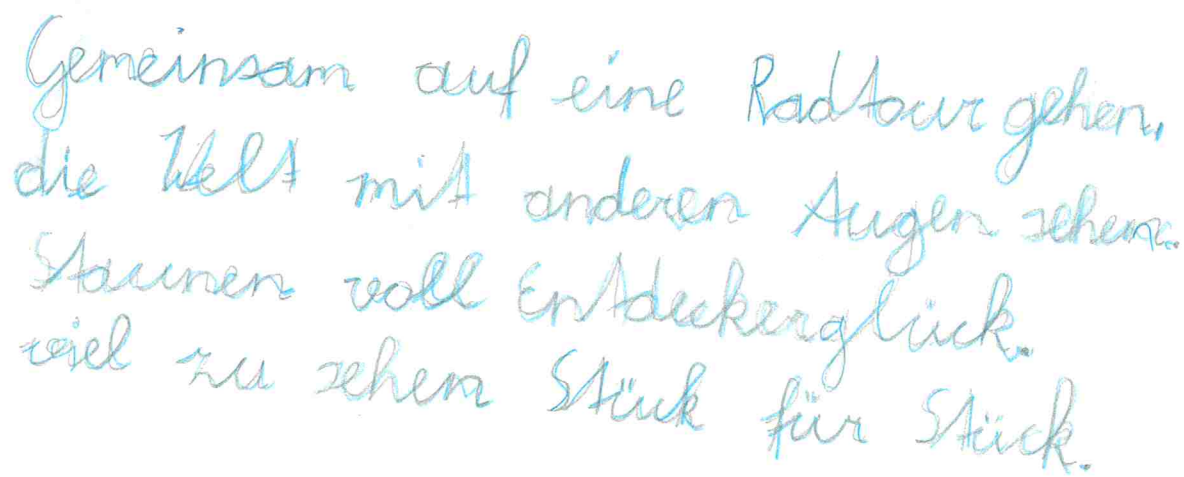 Gemeinsam auf eine Radtour gehen,
die Welt mit anderen Augen sehen.
Staunen voll Entdeckerglück.
viel zu sehen Stück für Stück.